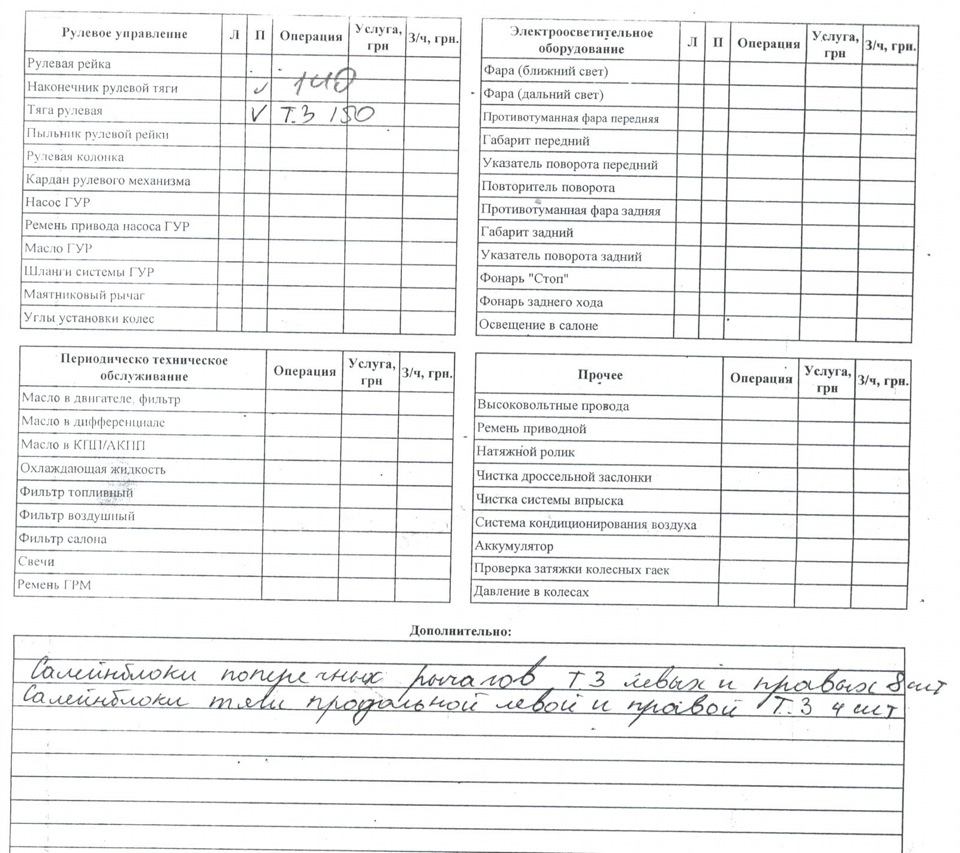 Рулевое управление Л П Операция Услуга, грн З/ч, грн.
Рулевая рейка
Наконечник рулевой тяги ✓ 140
Тяга рулевая V Т.З 150
Пыльник рулевой рейки
Рулевая колонка
Кардан рулевого механизма
Насос ГУР
Ремень привода насоса ГУР
Масло ГУР
Шланги системы ГУР
Маятниковый рычаг
Углы установки колес
Электроосветительное оборудование Л П Операция Услуга, грн З/ч, грн.
Фара (ближний свет)
Фара (дальний свет)
Противотуманная фара передняя
Габарит передний
Указатель поворота передний
Повторитель поворота
Противотуманная фара задняя
Габарит задний
Указатель поворота задний
Фонарь "Стоп"
Фонарь заднего хода
Освещение в салоне
Периодическо техническое обслуживание Операция Услуга, грн З/ч, грн.
Масло в двигателе, фильтр
Масло в дифференциале
Масло в КПП/АКПП
Охлаждающая жидкость
Фильтр топливный
Фильтр воздушный
Фильтр салона
Свечи
Ремень ГРМ
Прочее Операция Услуга, грн З/ч, грн.
Высоковольтные провода
Ремень приводной
Натяжной ролик
Чистка дроссельной заслонки
Чистка системы впрыска
Система кондиционирования воздуха
Аккумулятор
Проверка затяжки колесных гаек
Давление в колесах
Дополнительно:
Салейнблоки поперечных рычагов ТЗ левых и правых 8 шт
Салейнблоки тяги продольной левой и правой Т.З 4 шт